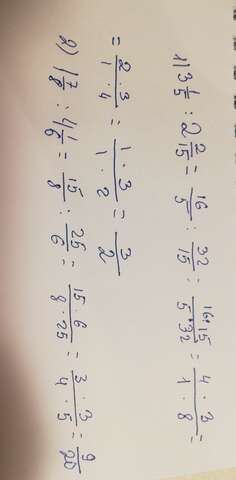 1) 3 1/5 : 2 2/15 = 16/5 : 32/15 = 16·15/5·32 = 4·3/1·8 =
= 2·3/1·4 = 1·3/1·2 = 3/2
2) 1 7/8 : 4 1/6 = 15/8 : 25/6 = 15·6/8·25 = 3·3/4·5 = 9/20